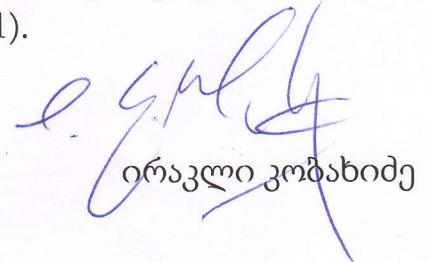 ).
ირაკლი კობახიძე